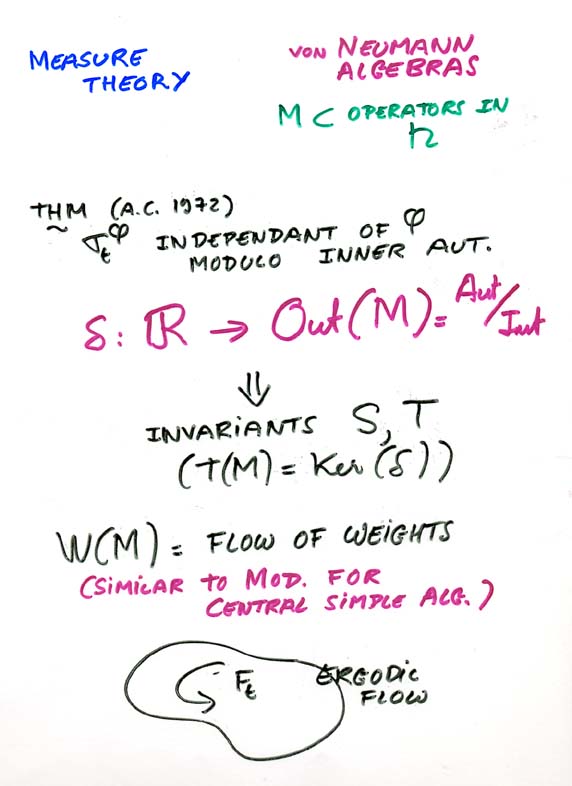 MEASURE
THEORY
VON NEUMANN
ALGEBRAS
M ⊂ OPERATORS IN
THM (A.C. 1972)
σ_t^φ INDEPENDANT OF φ
MODULO INNER AUT.
δ: ℝ → Out(M) = Aut/Int
⇓
INVARIANTS S, T
(T(M) = Ker(δ))
W(M) = FLOW OF WEIGHTS
(SIMILAR TO MOD. FOR
CENTRAL SIMPLE ALG.)
F_t
ERGODIC
FLOW